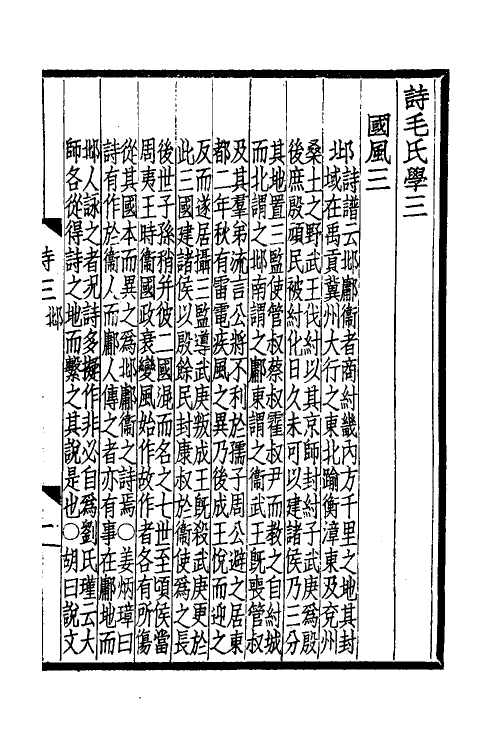 詩毛氏學三
國風三
邶詩譜云邶鄘衞者商紂畿內方千里之地其封
域在禹貢冀州大行之東北踰衡漳東及兗州
桑土之野武王伐紂以其京師封紂子武庚為殷
後庶殷頑民被紂化日久未可以建諸侯乃三分
其地置三監使管叔蔡叔霍叔尹而教之自紂城
而北謂之邶南謂之鄘東謂之衞武王既喪管叔
及其羣弟流言公將不利於孺子周公避之居東
都二年秋有雷電疾風之異乃後成王悅而迎之
反而遂居攝三監導武庚叛成王既殺武庚更於
此三國建諸侯以殷餘民封康叔於衞使為之長
後世子孫稍并彼二國混而名之七世至頃侯當
周夷王時衞國政衰變風始作故作者各有所傷
從其國本而異之為邶鄘衞之詩焉〇姜炳璋曰
詩有作於衞人而鄘人傳之者亦有事在鄘地而
邶人詠之者况詩多擬作非必自為劉氏瑾云大
師各從得詩之地而繫之其說是也〇胡曰說文
詩三 邶
一